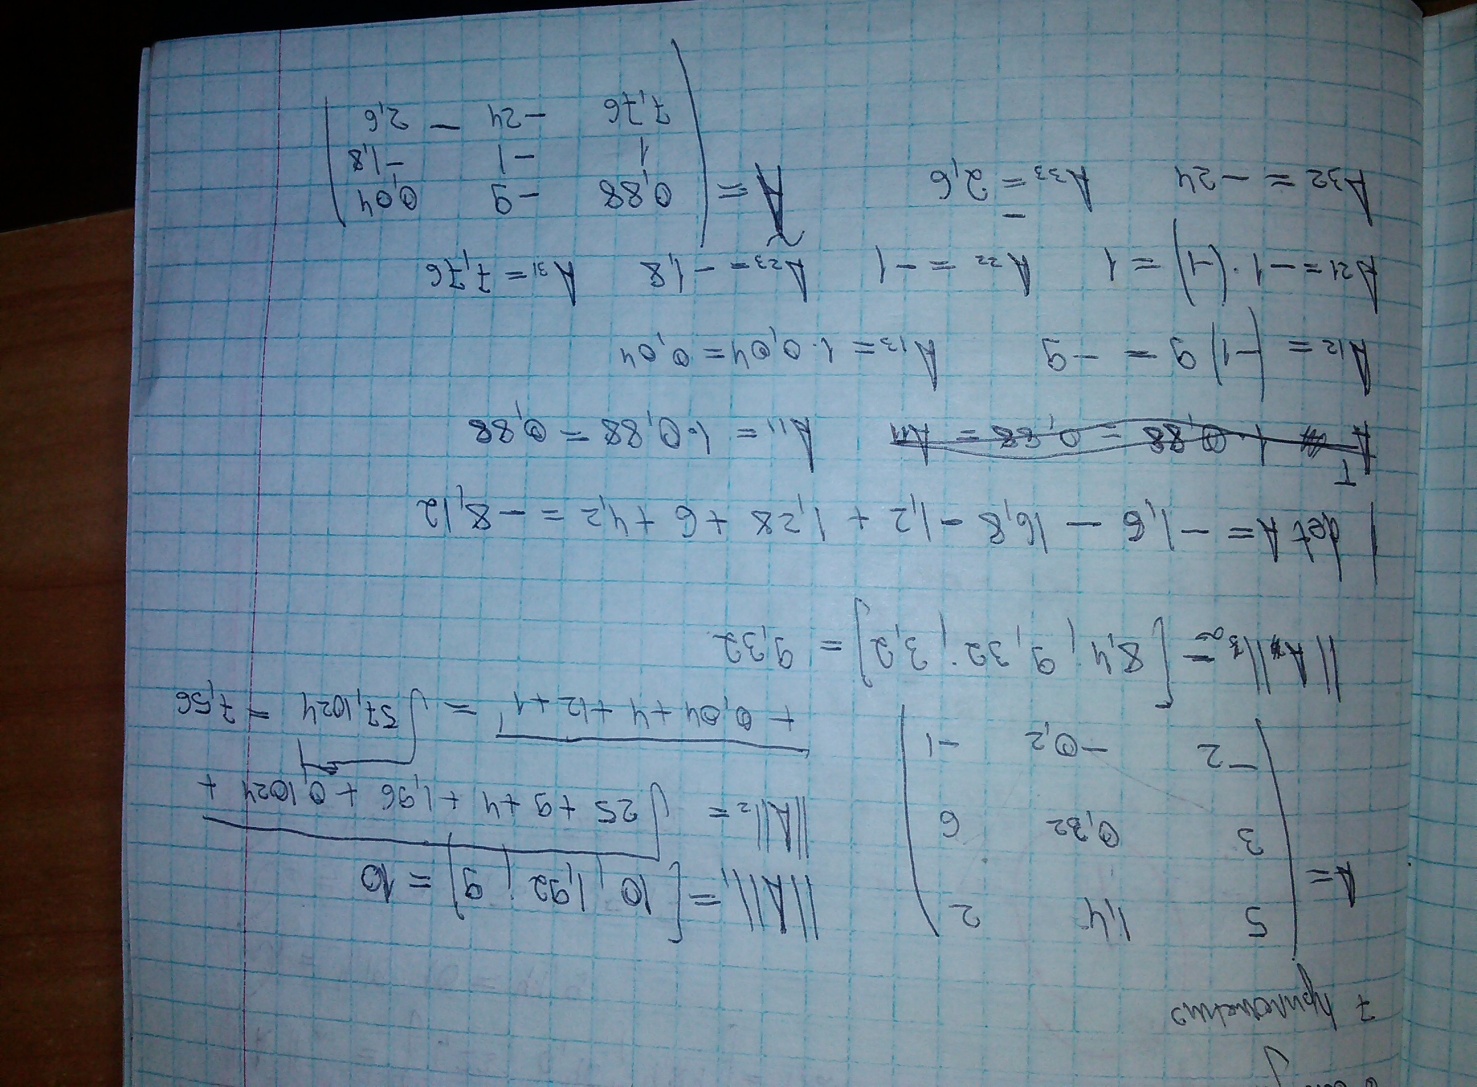 7 приложение
A = ( 5 1,4 2
3 0,32 6
-2 -0,2 -1 )
||A||₁ = [10; 1,92; 9] = 10
||A||₂ = √25 + 9 + 4 + 1,96 + 0,1024 +
+ 0,04 + 4 + 12 + 1 = √57,1024 = 7,56
||A||∞ = [8,4; 9,32; 3,2] = 9,32
det A = -1,6 - 16,8 - 1,2 + 1,28 + 6 + 4,2 = -8,12
A₁₁ = 1·0,88 = 0,88
A₁₂ = (-1) 9 = -9 A₁₃ = 1·0,04 = 0,04
A₂₁ = -1·(-1) = 1 A₂₂ = -1 A₂₃ = -1,8 A₃₁ = 7,76
A₃₂ = -24 A₃₃ = -2,6
Ã = ( 0,88 -9 0,04
1 -1 -1,8
7,76 -24 -2,6 )